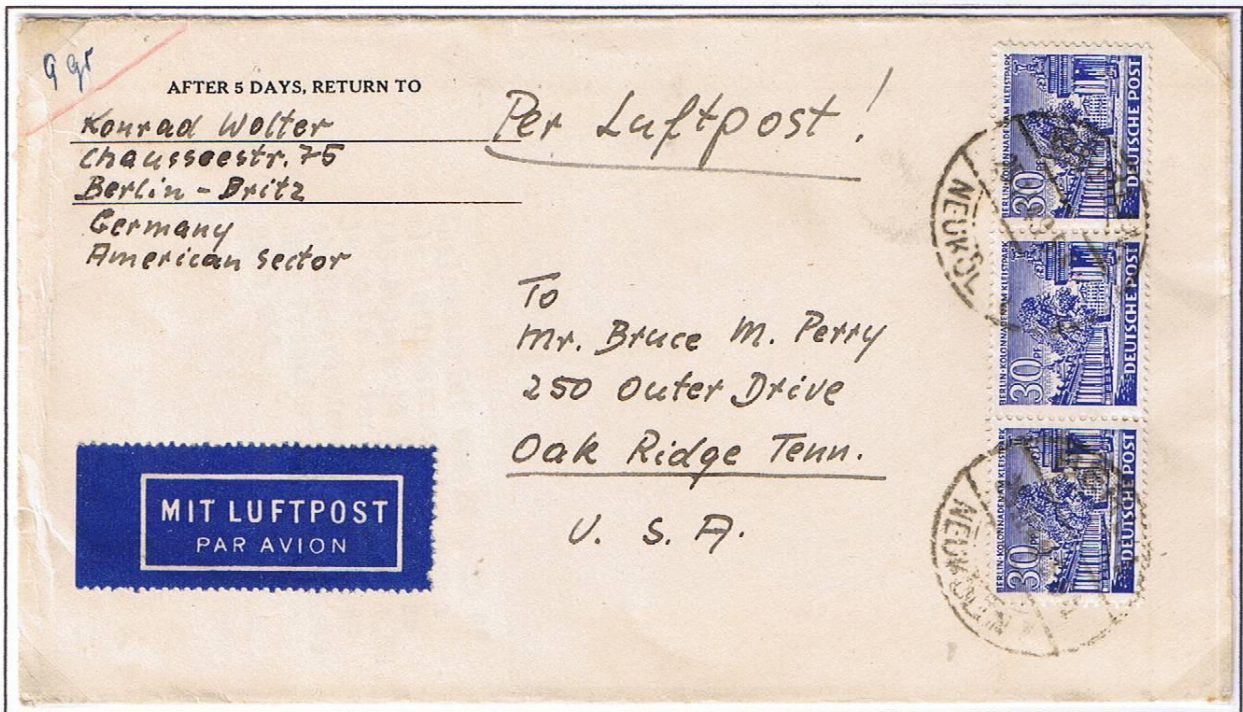 9 gr
AFTER 5 DAYS, RETURN TO
Konrad Wolter
Chausseestr. 75
Berlin - Britz
Germany
American sector
Per Luftpost!
To
Mr. Bruce M. Perry
250 Outer Drive
Oak Ridge Tenn.
U. S. A.
MIT LUFTPOST
PAR AVION
BERLIN·KOLONNADEN AM KLEISTPARK
30 PF
DEUTSCHE POST
BERLIN·KOLONNADEN AM KLEISTPARK
30 PF
DEUTSCHE POST
BERLIN·KOLONNADEN AM KLEISTPARK
30
DEUTSCHE POST
NEUKÖL
NEUKÖLLN